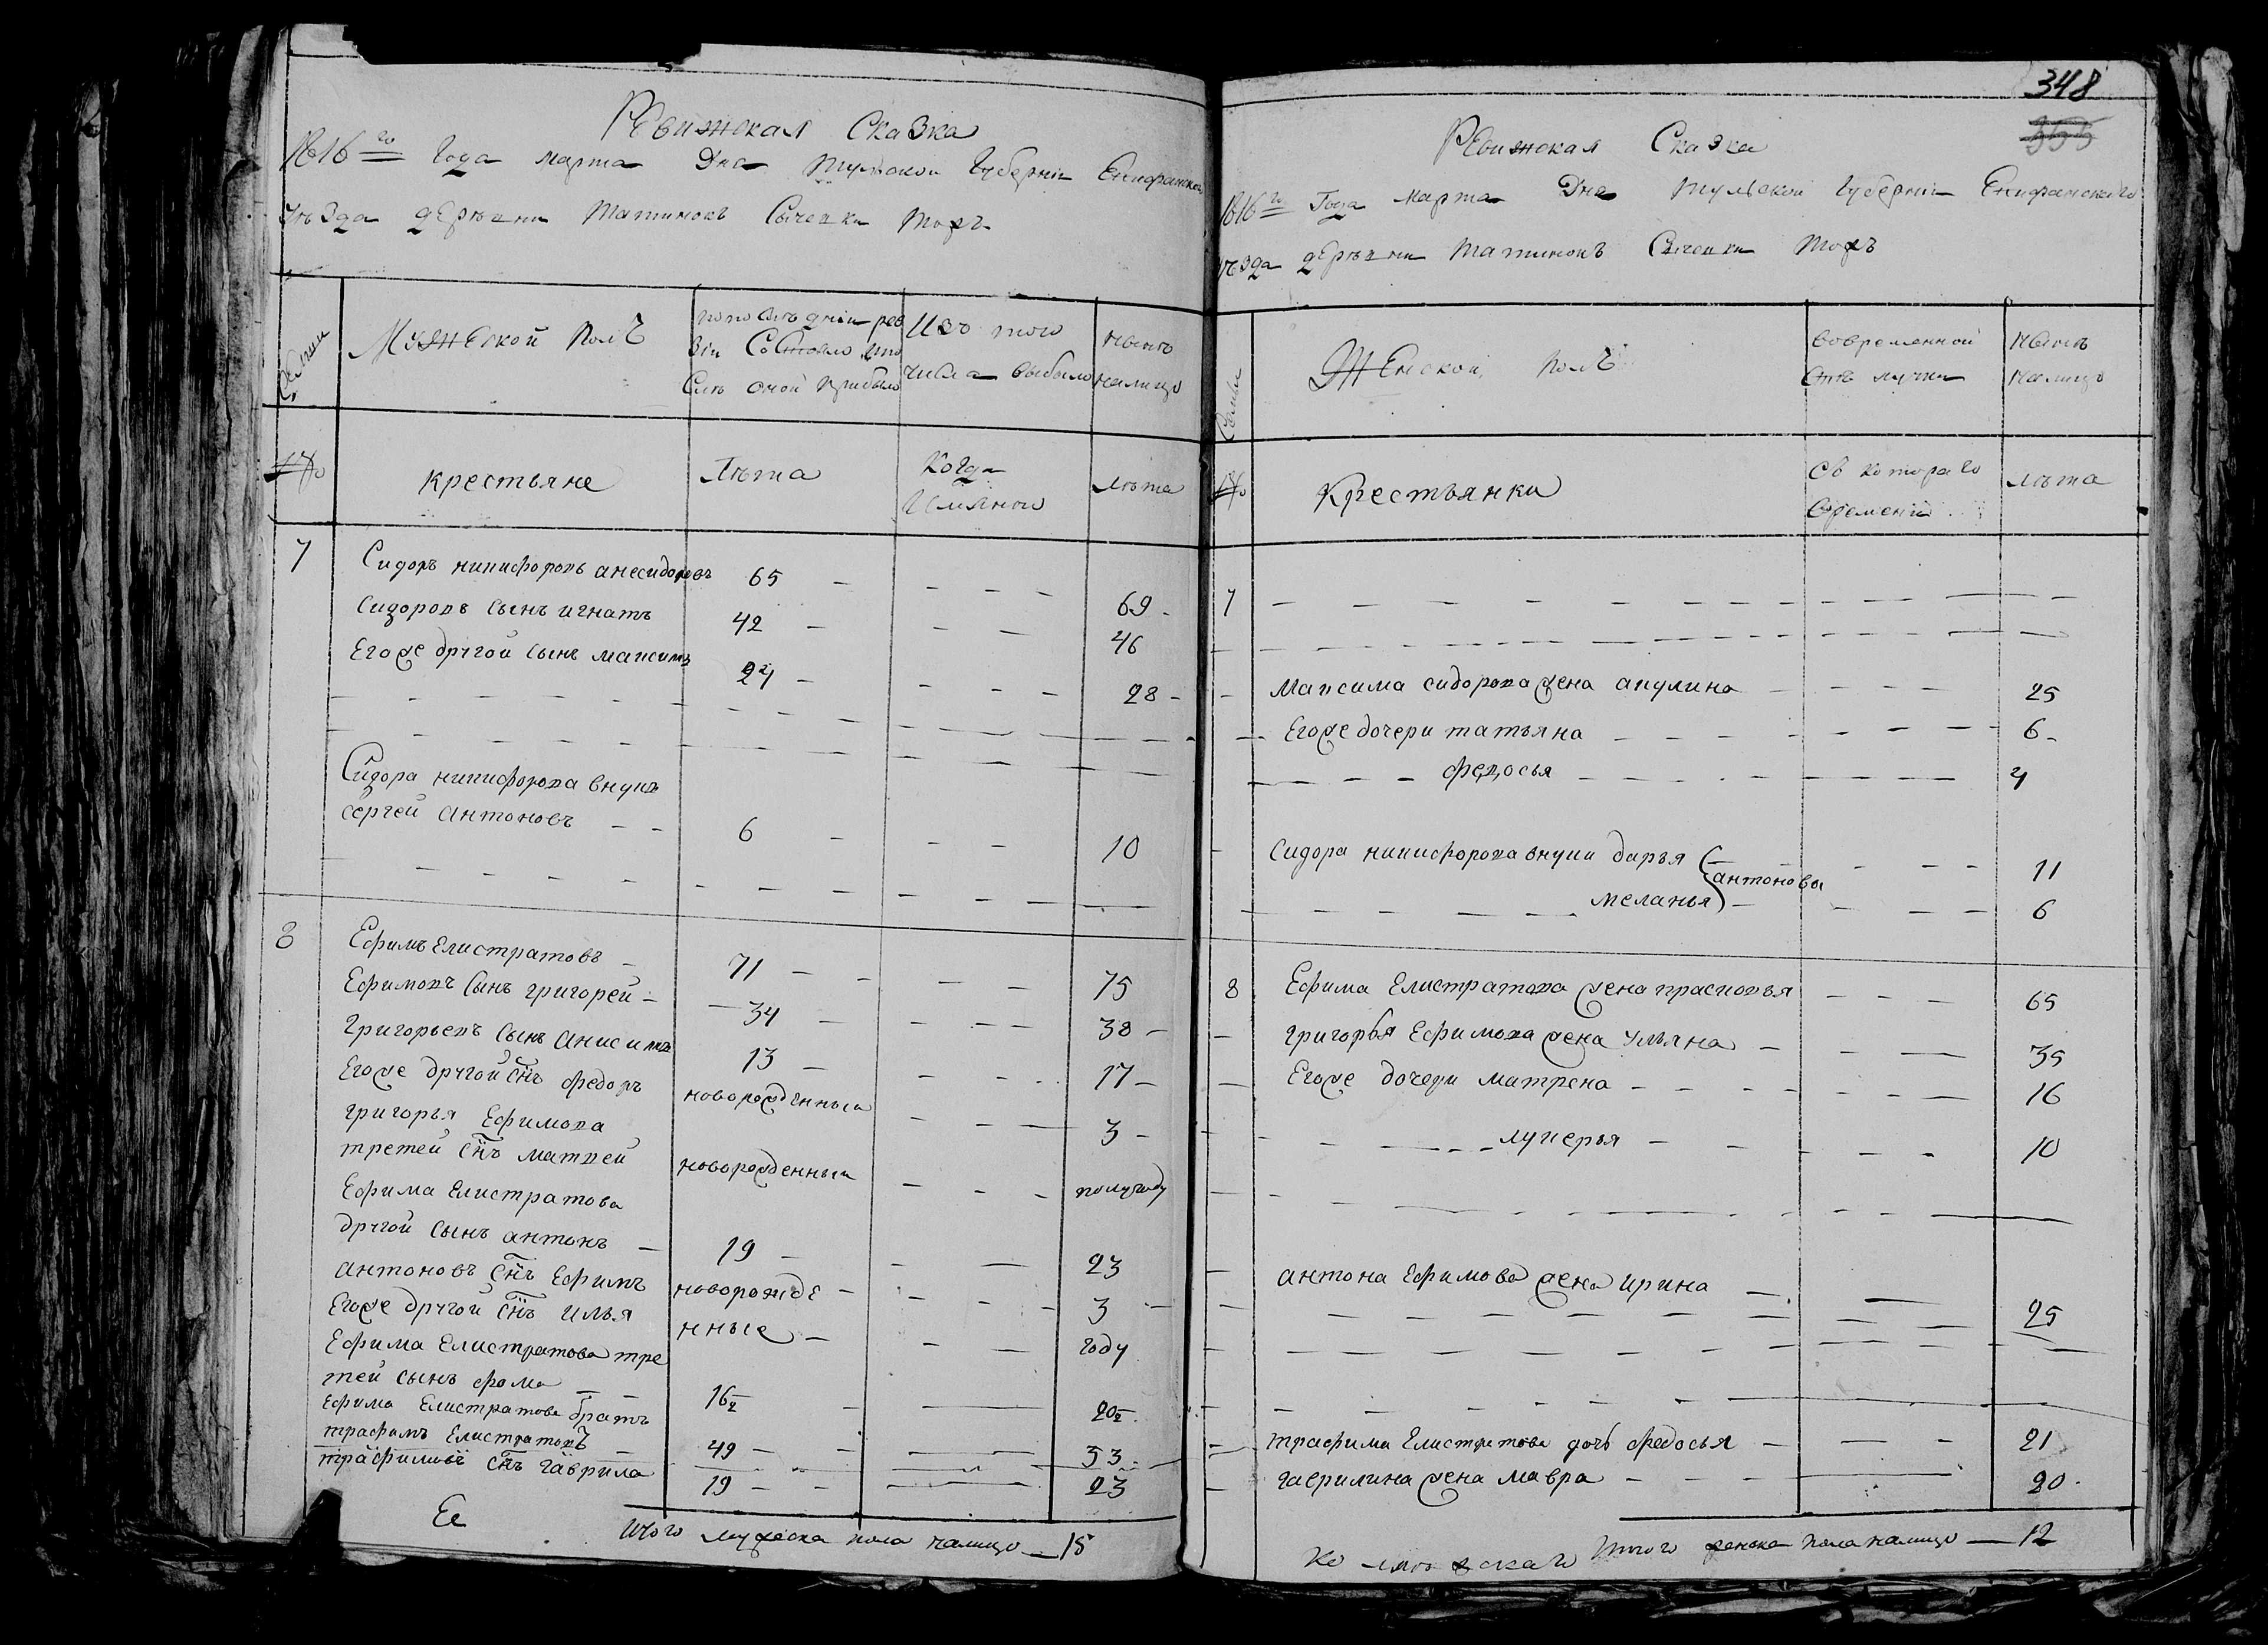 Ревижская Сказка
1816го Года марта Дня Тульской Губерніи Епифанскаго
уѣзда дерѣвни Татинокъ Сычевки тожъ
Семьи
Мужеской полъ
по последнѣи реви
зіи Состояло и по
слѣ оной прибыло
Изъ того
числа выбыло
Нынѣ
налицо
№
крестьяне
Лѣта
Когда
Имянно
лѣта
7 Сидоръ никифоровъ анесидоровъ 65 69
Сидоровъ Сынъ игнатъ 42 46
Егоже другой Сынъ максимъ 24 28
Сидора никифорова внукъ
Сергей антоновъ 6 10
8 Ефимъ Елистратовъ 71 75
Ефимовъ Сынъ григорей 34 38
Григорьевъ Сынъ анисимъ 13 17
Егоже другой Снъ федоръ новорожденныи 3
григорья Ефимова
третей Снъ матвей новорожденныи полугоду
Ефима Елистратова
другой Сынъ антонъ 19 23
антоновъ Снъ Ефимъ новорожде 3
Егоже другой Снъ илья нные году
Ефима Елистратова тре
тей Сынъ фома 16½ 20½
Ефима Елистратова братъ
трафимъ Елистратовъ 49 53
трафимовъ Снъ гаврила 19 23
Итого мужеска пола налицо 15
Ее
348
355
Ревижская Сказка
1816го Года Марта Дня Тульской Губерніи Епифанскаго
уѣзда дерѣвни Татинокъ Сычевки тожъ
Семьи
Женской полъ
вовременной
отлучки
Нынѣ
налицо
№
Крестьянки
Съ котораго
времени
лѣта
7
Максима сидорова жена акулина 25
Егоже дочери татьяна 6
федосья 4
Сидора никифорова внуки дарья антоновы 11
меланья 6
8 Ефима Елистратова жена прасковья 65
григорья Ефимова жена ульяна 35
Егоже дочери матрена 16
лукерья 10
антона Ефимова жена ирина 25
трафима Елистратова дочь федосья 21
гаврилина жена мавра 20
Итого женска пола налицо 12